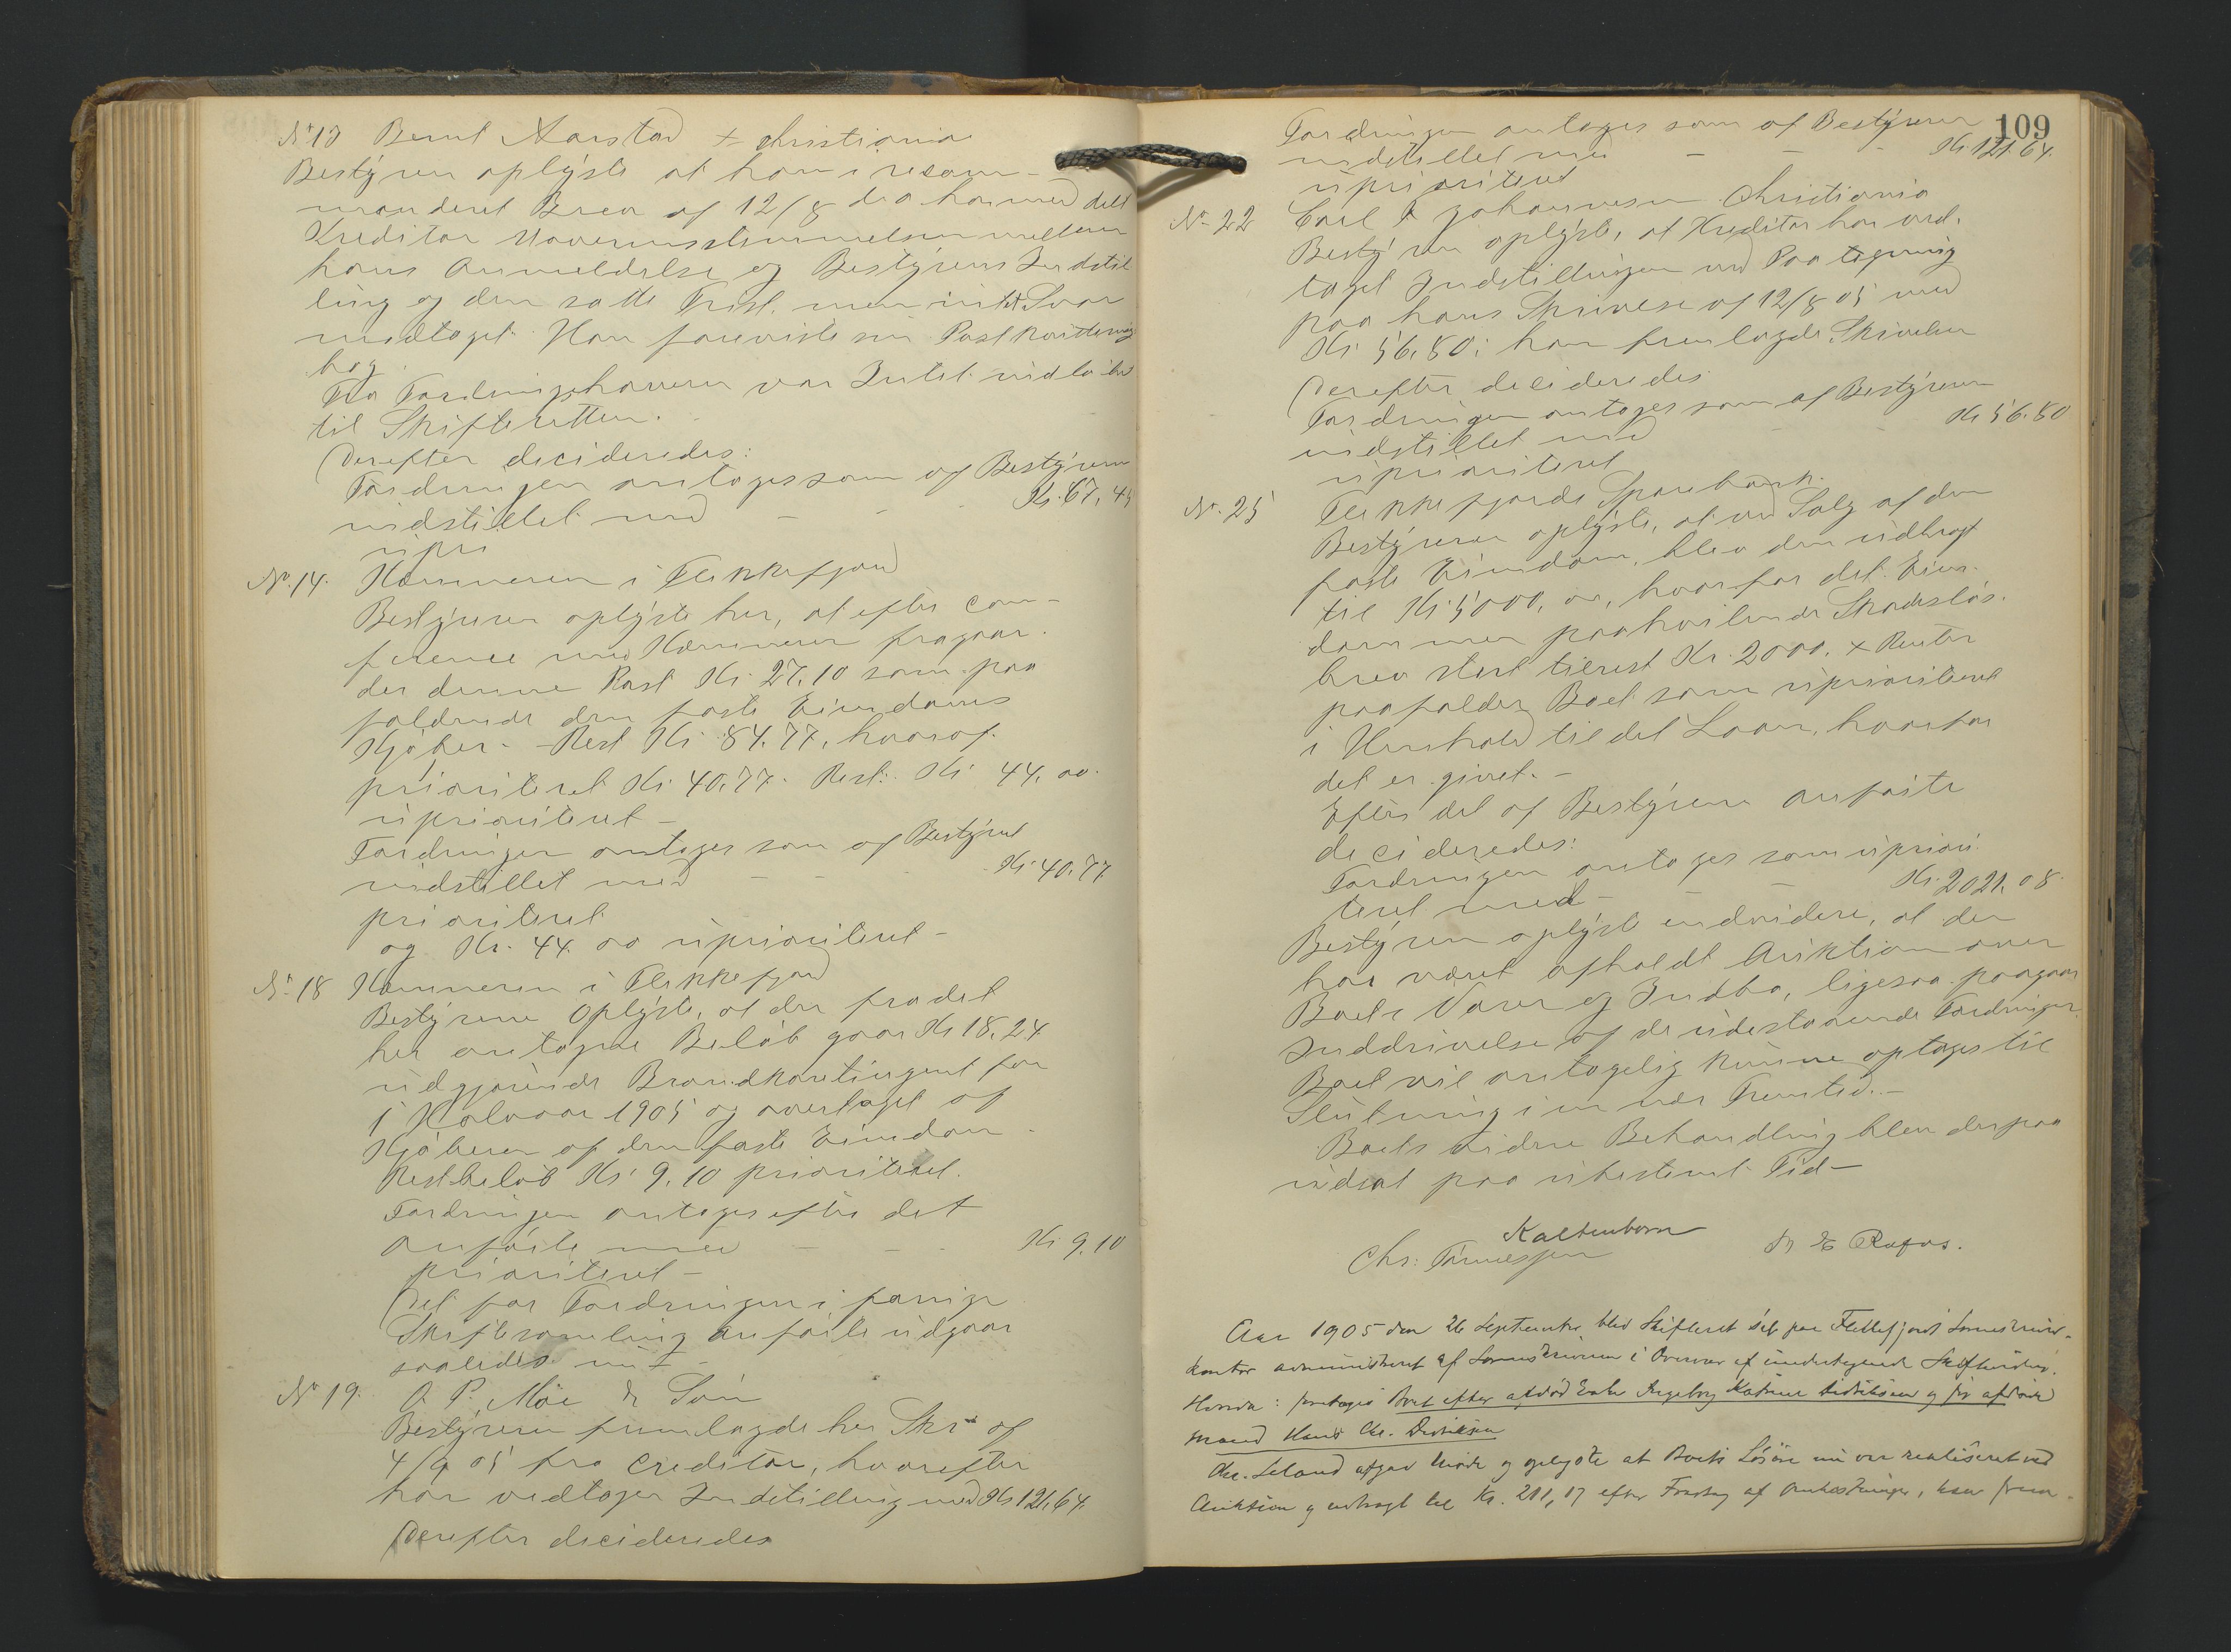 No 13 Bernt Aarstad + Christiania
Bestyreren oplyste at han i recom-
manderet Brev af 12/8 d a har med delt
Kreditor Uoverensstemmelsen mellem
hans Anmeldelse og Bestyrerens Indstil
ling og den satte Frist, men intet Svar
modtaget. Han foreviste sin Postkvitterings
bog.
Fra Fordringshaveren var Intet indløbet
til Skifteretten.
Derefter decideredes:
Fordringen antages som af Bestyreren
indstillet med - - - Kr. 67,45
upri
No. 14. Kæmneren i Flekkefjord
Bestyreren oplyste her, at efter con-
ference med Kæmneren fragaar
der denne Post Kr 27.10 som paa
faldende den faste Eiendoms
Kjøber. - Rest Kr 84.77, hvoraf
prioriteret Kr 40.77. Rest: Kr 44.00.
uprioriteret -
Fordringen antages som af Bestyrer
indstillet med - - - Kr 40.77
prioriteret
og Kr. 44.00 uprioriteret -
No 18 Kæmneren i Flekkefjord
Bestyreren Oplyste, at der fra det
her antagne Beløb gaar Kr 18.24
udgjørende Brandkontingent for
1 Halvaar 1905 og overtaget af
Kjøberen af den faste Eiendom.
Restbeløb Kr 9.10 prioriteret.
Fordringen antages efter det
Anførte med - - - Kr 9.10
prioriteret -
Det for Fordringen i forrige
Skiftesamling anførte udgaar
saaledes
No 19. O P. Moe & Søn
Bestyreren fremlagde her Skr af
4/9 05 fra Creditor, hvorefter
har vedtaget Indstilling med Kr 121,64.
Derefter decideredes
109
Fordringen antages som af Bestyreren
indstillet med - - - Kr. 121.64.
uprioriteret
No 22 Carl Johannesen Christiania
Bestyreren oplyste, at Kreditor har ved-
taget Indstillingen ved Paategning
paa hans Skrivelse af 12/8 05 med
Kr. 56.80; han fremlagde Skrivelsen
Derefter decideredes
Fordringen antages som af Bestyreren
indstillet med - - Kr 56.80
uprioriteret
No. 25 Flekkefjords Sparebank.
Bestyreren oplyste, at ved Salg af den
faste Eiendom, blev den udbragt
til Kr. 5000,00, hvorfor det Eien-
dommen paahvilende Skadesløs-
brev stort tilrest Kr. 2000. + Renter
paafalder Boet som uprioriteret
i Henhold til det Laan, hvorfor
det er givet. -
Efter det af Bestyreren anførte
decideredes:
Fordringen antages som upriori
teret med - - - Kr. 2021.08
Bestyreren oplyste endvidere, at der
har været afholdt Auktion over
Boets Varer og Indbo, ligesaa paagaar
Inddrivelse af de udestaaende Fordringer.
Boet vil antagelig kunne optages til
Slutning i en nær Fremtid. -
Boets videre Behandling blev derpaa
udsat paa ubestemt Tid -
Kaltenborn
Chr: Tønnessen Rafos.
Aar 1905 den 26 September blev Skifteret sat paa Flekkefjords Sorenskriver-
kontor administreret af Sorenskriveren i Overvær af undertegnede Skiftevidner.
Hvorda: foretages Boet efter afdød Enke Ingeborg Katrine Didriksen og før afdøde
Mand Hans Chr. Didriksen
Chr. Seland afgav Møde og oplyste at Boets Løsøre nu var realiseret ved
Auktion og udbragt til Kr. 211,17 efter Fradrag af Omkostninger, han frem-